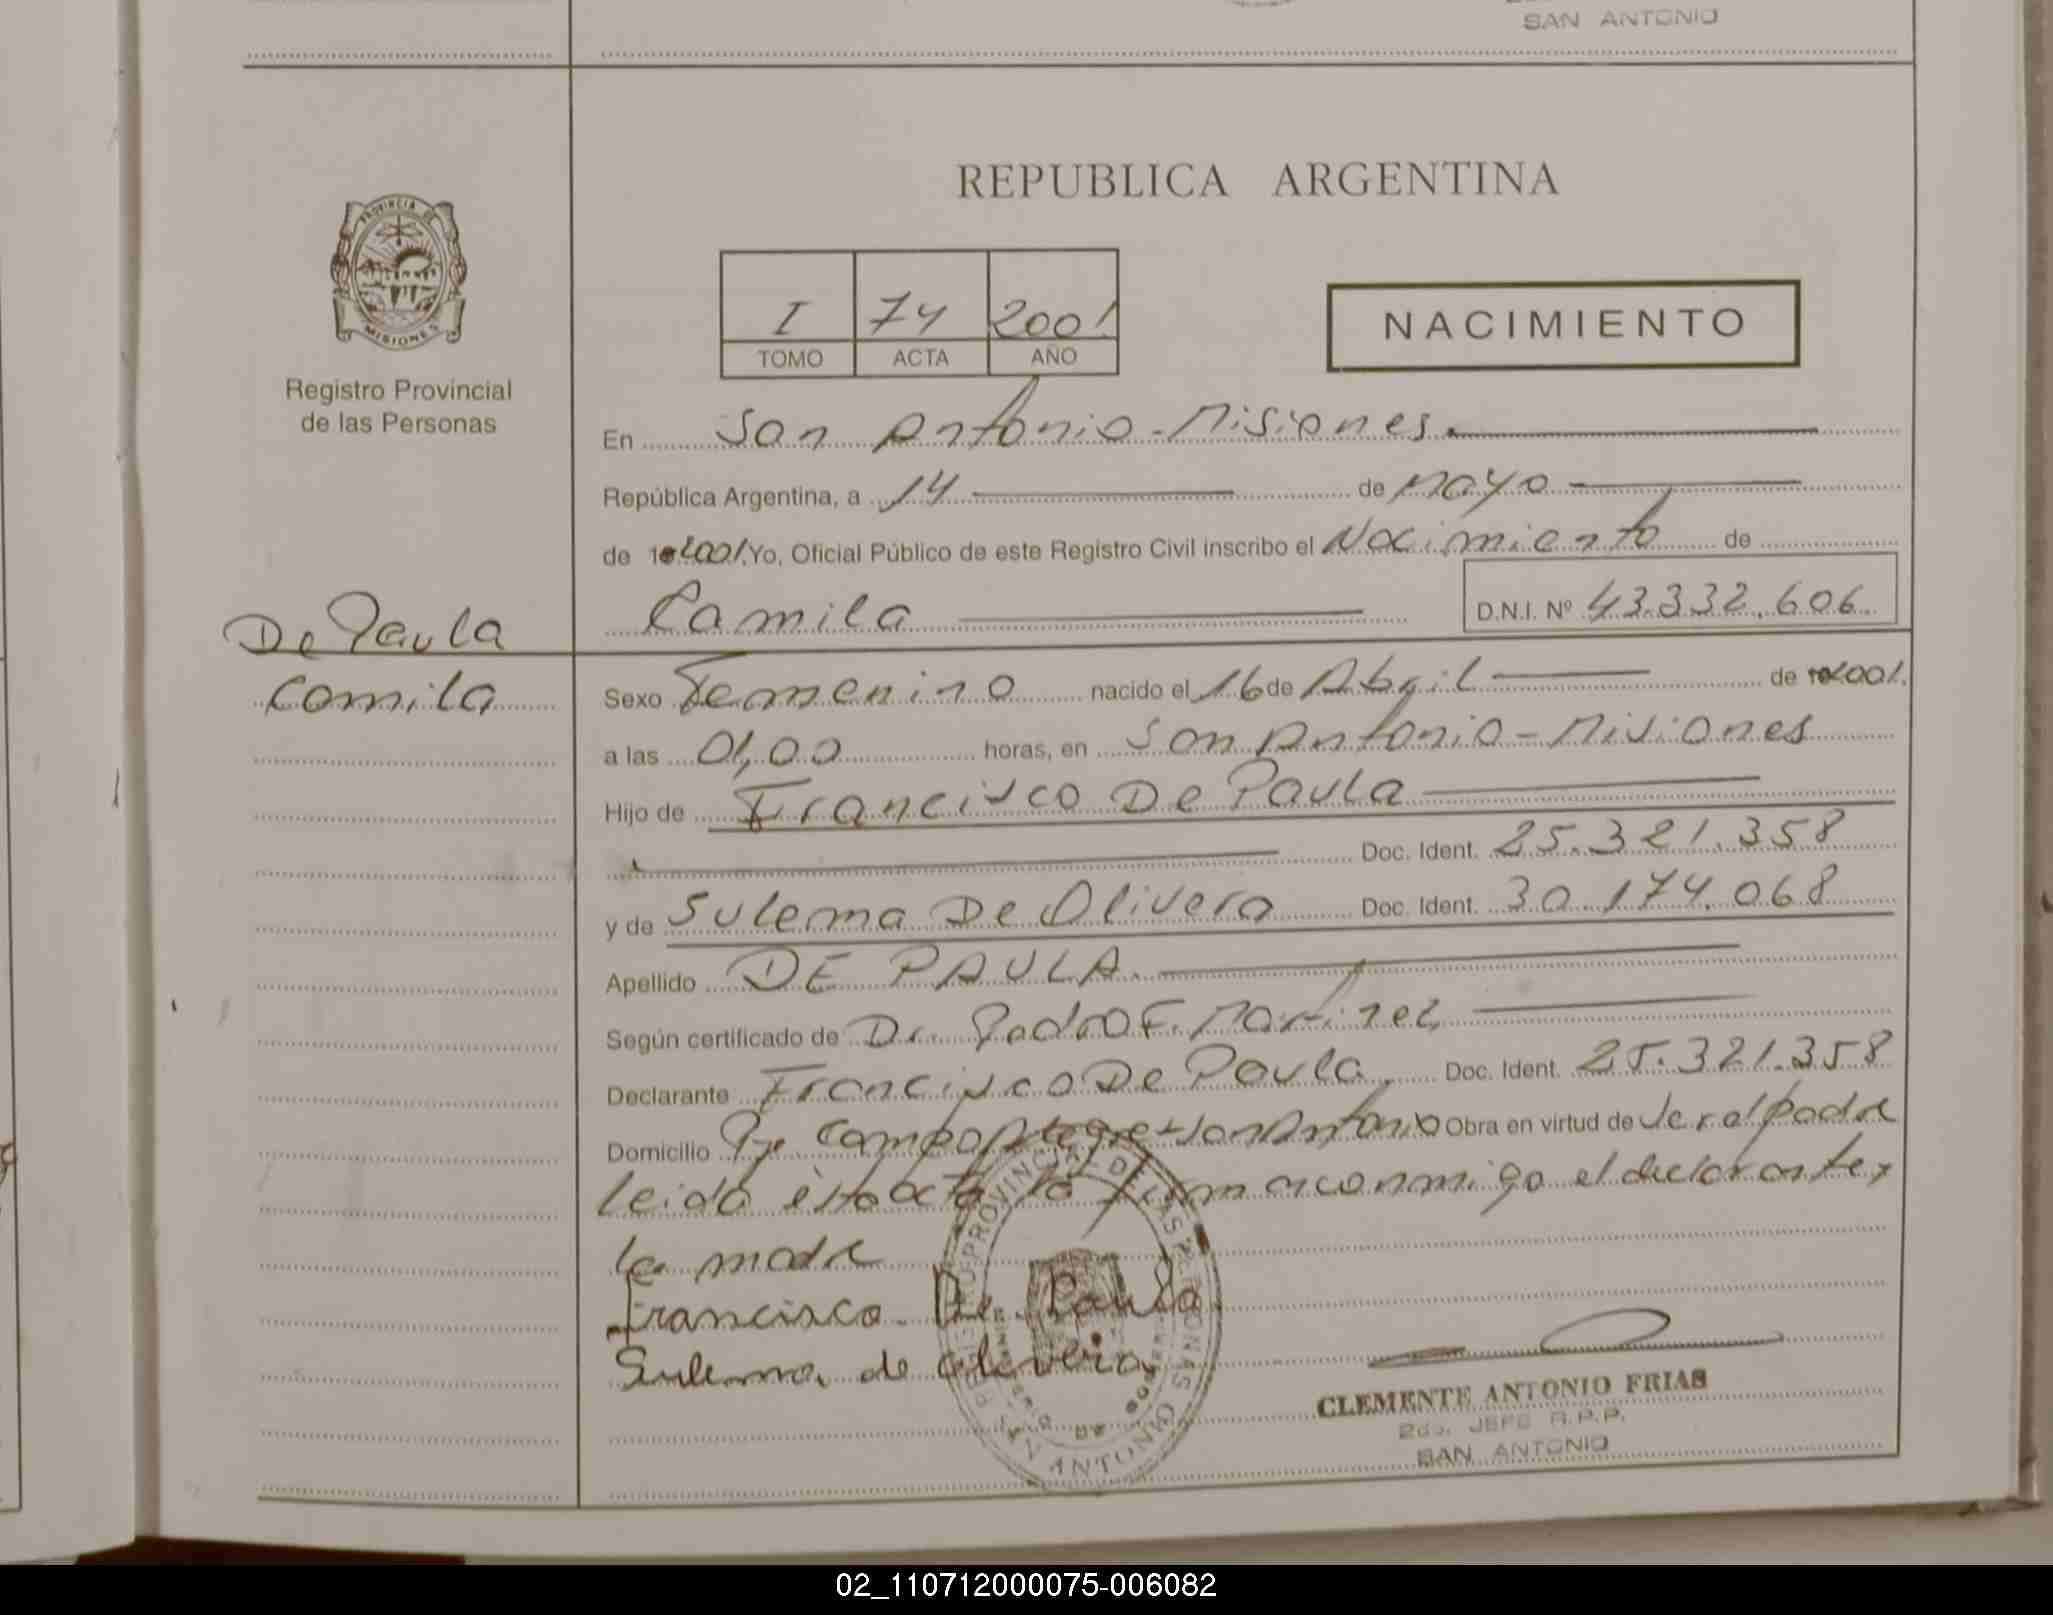 SAN ANTONIO
REPUBLICA ARGENTINA
PROVINCIA DE
MISIONES
Registro Provincial
de las Personas
I 74 2001
TOMO ACTA AÑO
NACIMIENTO
En San Antonio - Misiones.
República Argentina, a 14 de Mayo
de 2001. Yo, Oficial Público de este Registro Civil inscribo el Nacimiento de
Camila D.N.I. Nº 43.332.606
De Paula
Camila
Sexo Femenino nacido el 16 de Abril de 2001.
a las 01,00 horas, en San Antonio - Misiones
Hijo de Francisco De Paula
Doc. Ident. 25.321.358
y de Sulema De Olivera Doc. Ident. 30.174.068
Apellido DE PAULA.
Según certificado de Dr. Pedro F. Martinez
Declarante Francisco De Paula Doc. Ident. 25.321.358
Domicilio San Antonio Obra en virtud de ser el padre
leida ésta acta la firman conmigo el declarante y
la madre
Francisco De Paula
Sulema de oliveira
CLEMENTE ANTONIO FRIAS
2do. JEFE R.P.P.
SAN ANTONIO
02_110712000075-006082